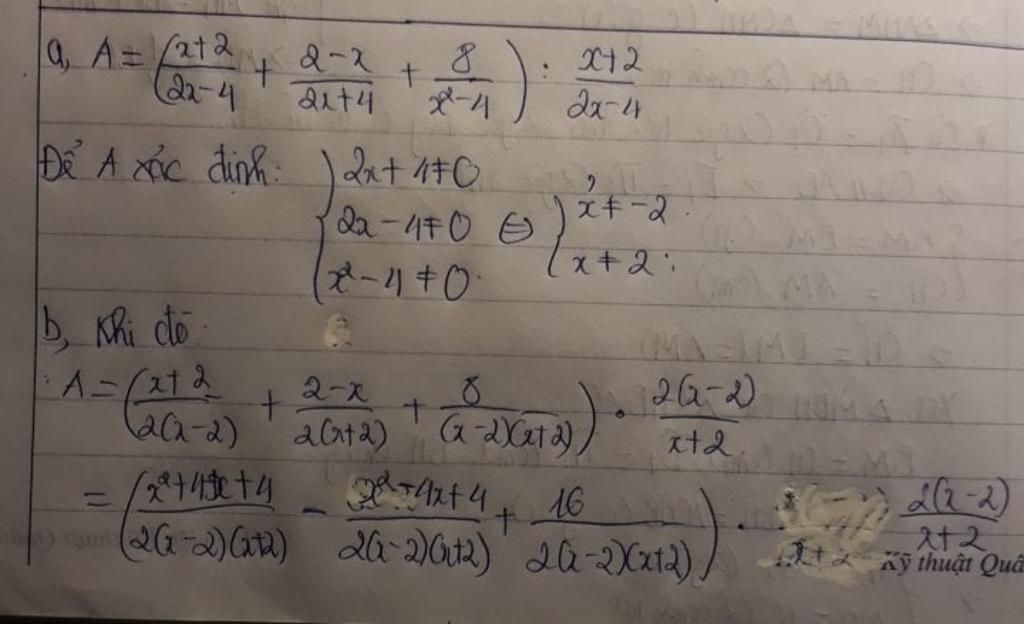 a, A = ((x+2)/(2x-4) + (2-x)/(2x+4) + 8/(x²-4)) : (x+2)/(2x-4)
Để A xác định: { 2x+4≠0
2x-4≠0 ⇔ { x≠-2
x²-4≠0. x≠2.
b, Khi đó:
A = ((x+2)/(2(x-2)) + (2-x)/(2(x+2)) + 8/((x-2)(x+2))) · (2(x-2))/(x+2)
= ((x²+4x+4)/(2(x-2)(x+2)) - (x²-4x+4)/(2(x-2)(x+2)) + 16/(2(x-2)(x+2))) · (2(x-2))/(x+2)
Kỹ thuật Quâ